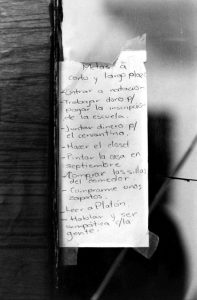 Metas a
corto y largo plazo
-Entrar a natación
-Trabajar duro p/
pagar la inscripción
de la escuela
-Juntar dinero p/
el cervantino
-Hacer el closet
-Pintar la casa en
septiembre
-Comprar las sillas
del comedor
-Comprarme unos
zapatos.
-Leer a Platón.
-Hablar y ser
simpática c/la
gente.